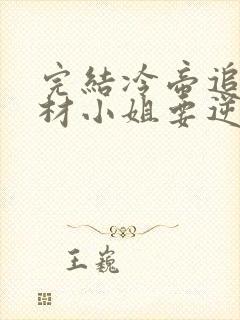 完結冷帝追
材小姐要逆
王巍